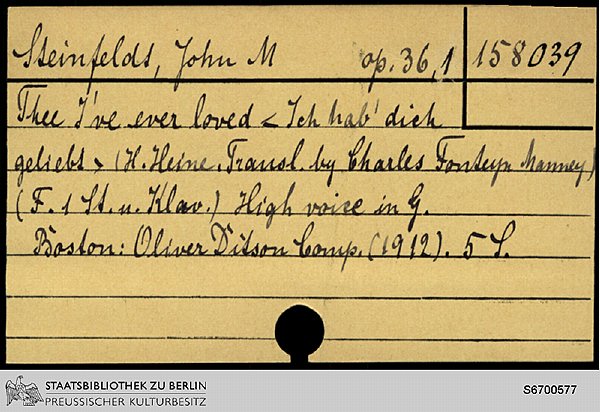 Steinfeldt, John M op. 36,1 158039
Thee I've ever loved < Ich hab' dich
geliebt > (H. Heine. Transl. by Charles Fonteyn Manney)
(F. 1 St. u. Klav.) High voice in G.
Boston: Oliver Ditson Comp. (1912). 5 S.
STAATSBIBLIOTHEK ZU BERLIN
PREUSSISCHER KULTURBESITZ
S6700577